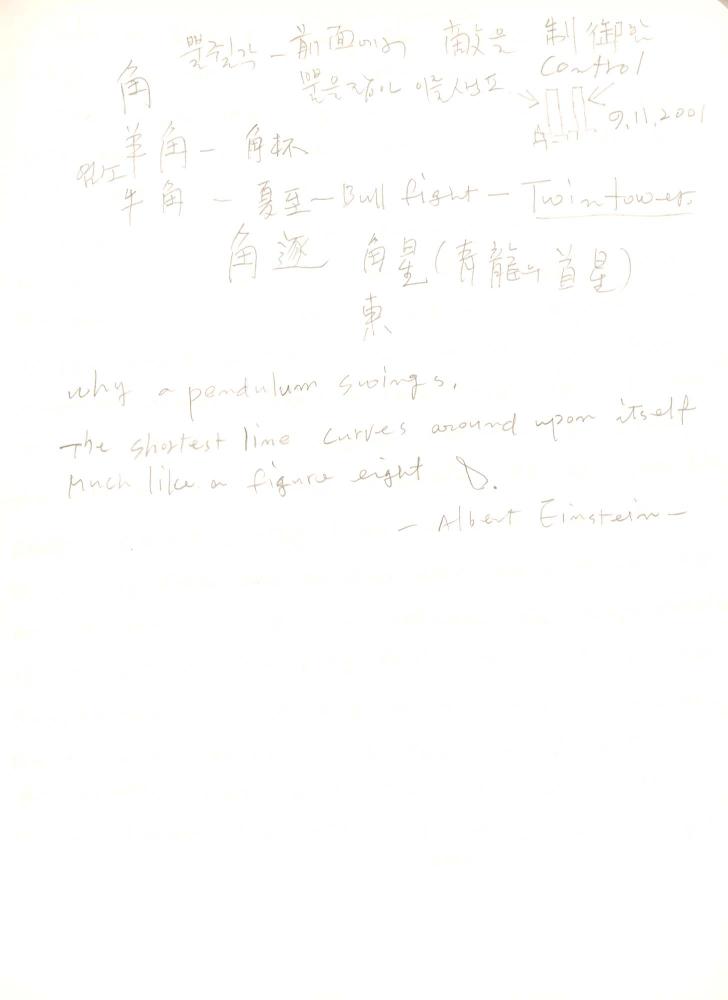 角 뿔쥘각 - 前面에서 敵을 制御함
control
뿔을 잡아
9.11.2001
羊角 - 角杯
牛角 - 夏至 - Bull fight - Twin tower.
角逐 角星(靑龍의 首星)
東
why a pendulum swings.
The shortest line curves around upon itself
Much like a figure eight
- Albert Einstein -